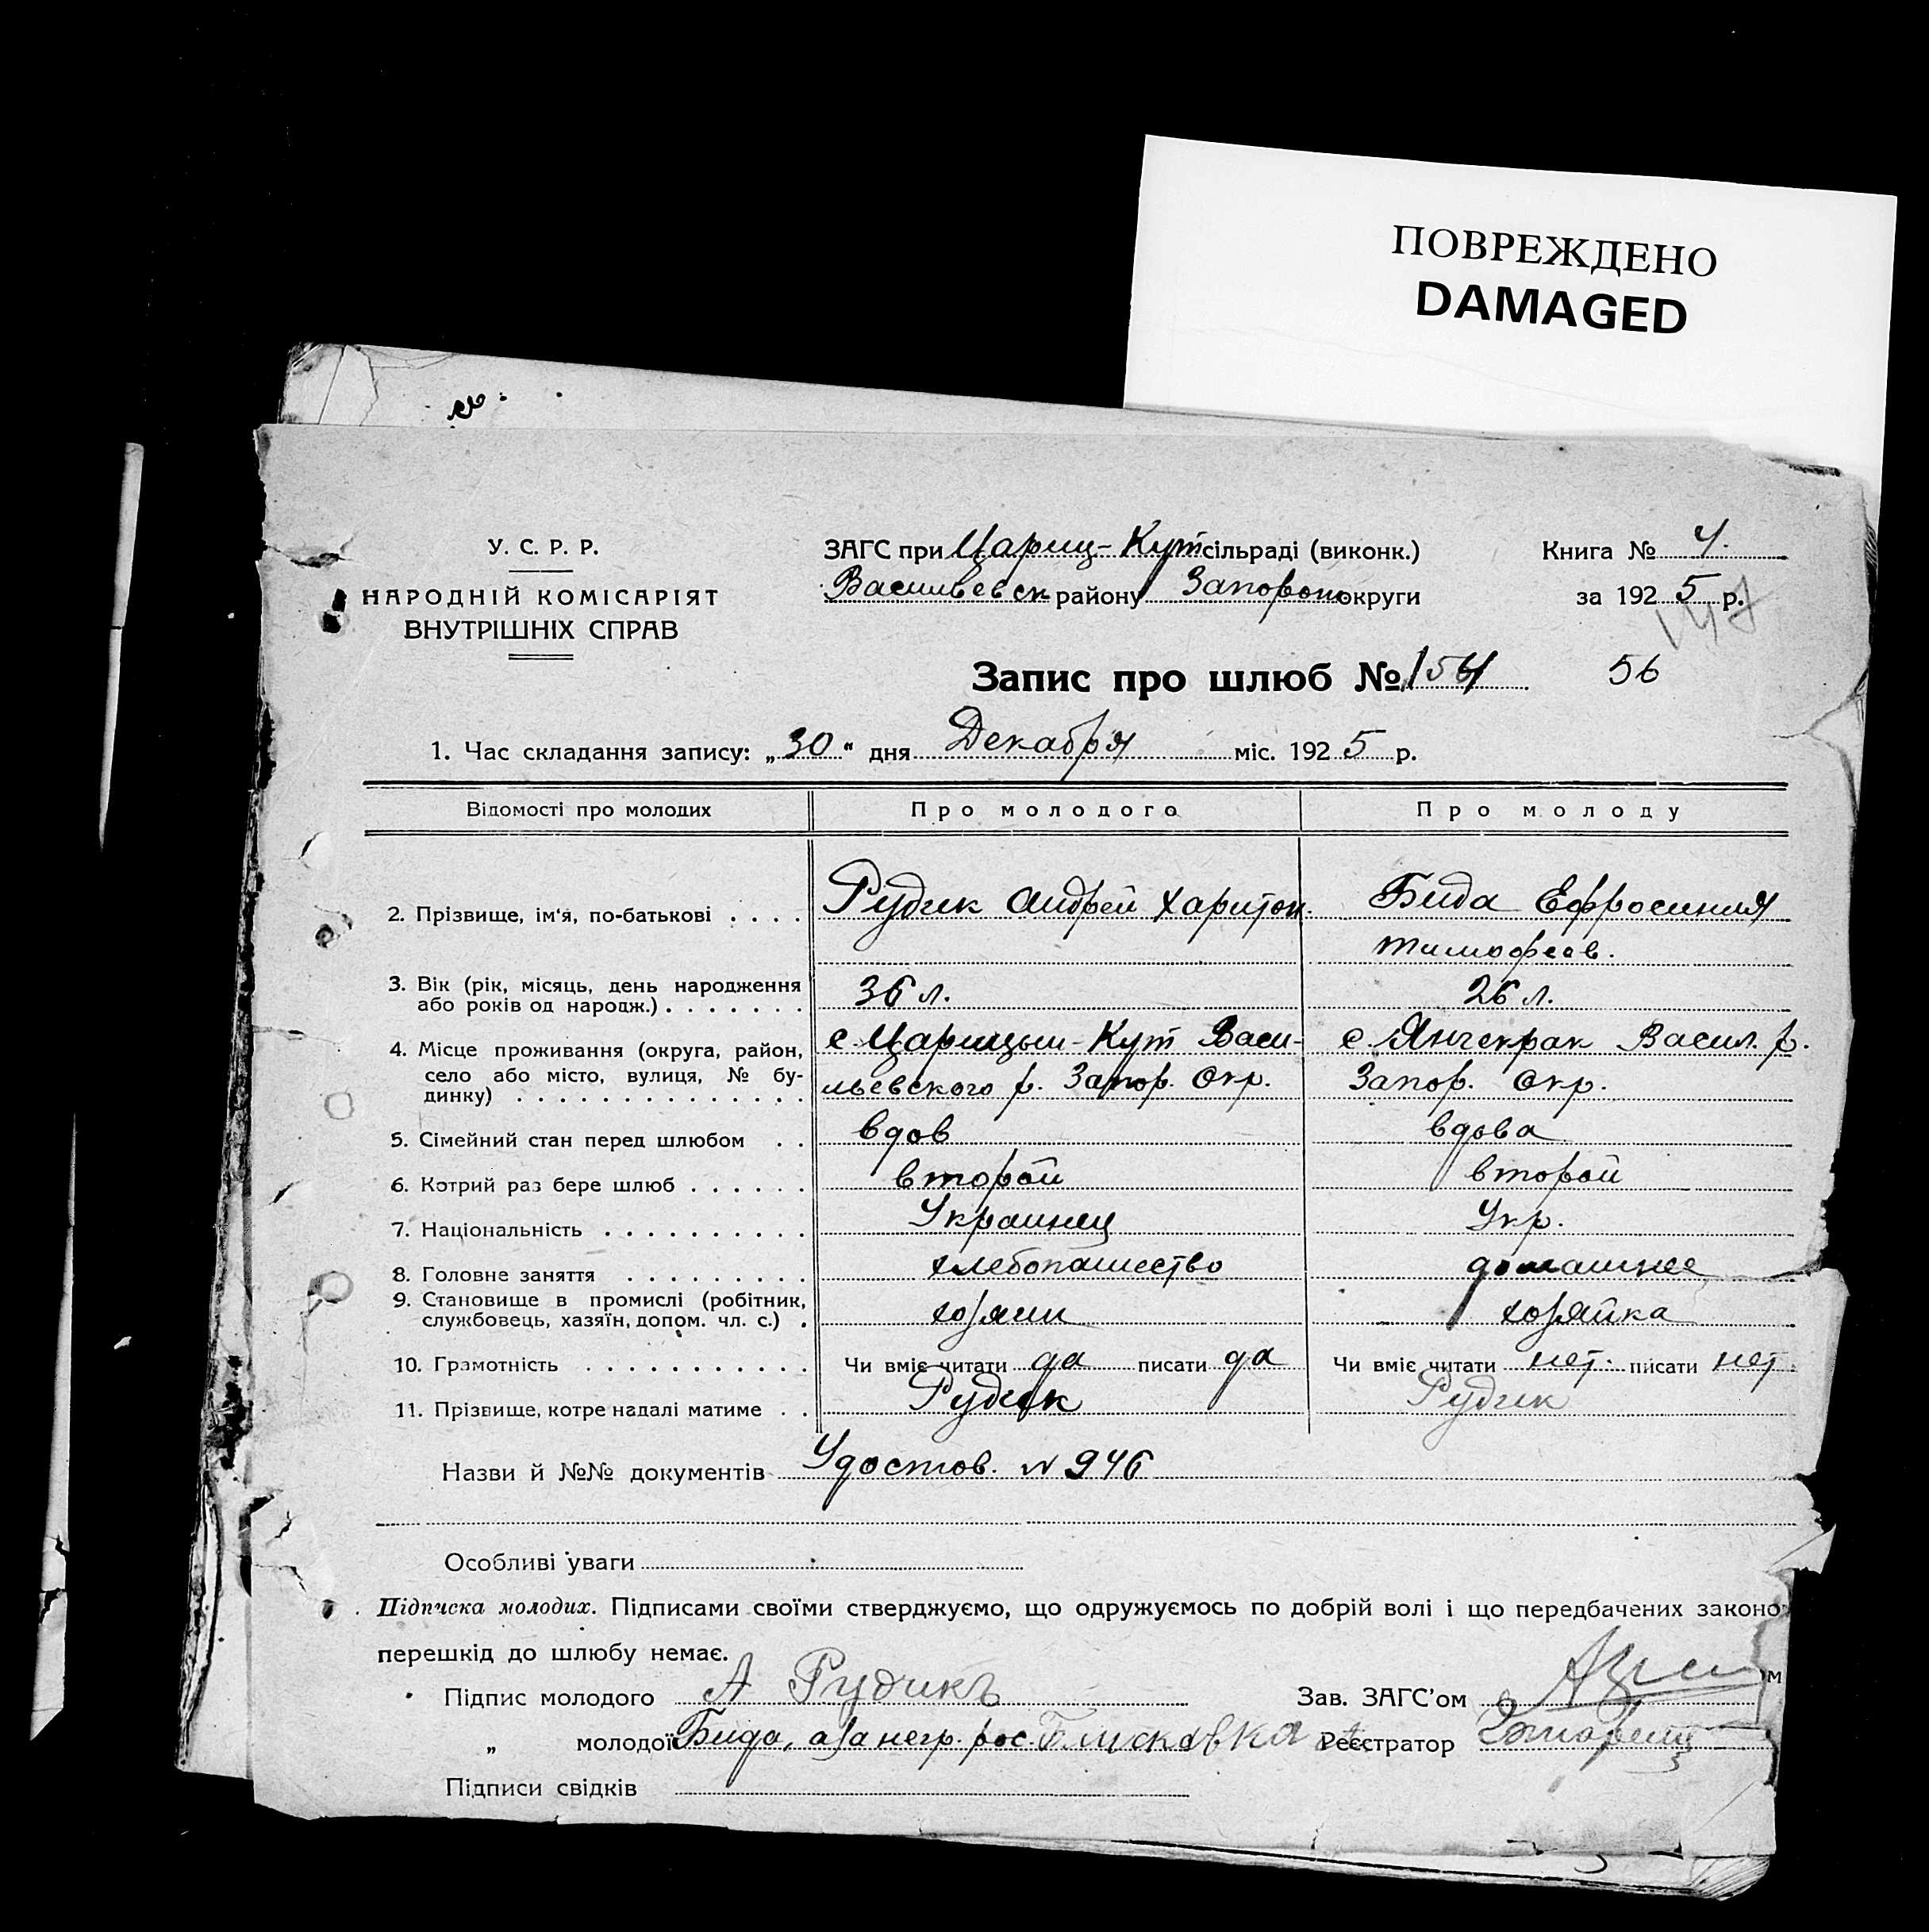 ПОВРЕЖДЕНО
DAMAGED
У. С. Р. Р.
НАРОДНІЙ КОМІСАРІЯТ
ВНУТРІШНІХ СПРАВ
ЗАГС при Цариц-Кут сільраді (виконк.)
Васильевск району Запорож округи
Книга № 4.
за 1925 р.
147
Запис про шлюб № 154
56
1. Час складання запису: „30“ дня Декабря міс. 1925 р.
Відомості про молодих Про молодого Про молоду
2. Прізвище, ім'я, по-батькові . . . . Рудик Андрей Харитон. Бида Ефросиния
Тимофеев.
3. Вік (рік, місяць, день народження
або років од народж.) . . . . . . . 36 л. 26 л.
4. Місце проживання (округа, район, с. Царицын-Кут Васи- с. Янчекрак Васил. р.
село або місто, вулиця, № бу- льевского р. Запор. Окр. Запор. Окр.
динку) . . . . . . . . . . . . . .
5. Сімейний стан перед шлюбом . . вдов вдова
6. Котрий раз бере шлюб . . . . . . второй второй
7. Національність . . . . . . . . . . Украинец Укр.
8. Головне заняття . . . . . . . . . хлебопашество домашнее
9. Становище в промислі (робітник,
службовець, хазяїн, допом. чл. с.) . хозяин хозяйка
10. Грамотність . . . . . . . . . . . Чи вміє читати да писати да Чи вміє читати нет. писати нет
11. Прізвище, котре надалі матиме . . Рудик Рудик
Назви й №№ документів Удостов. № 946
Особливі уваги
Підписка молодих. Підписами своїми стверджуємо, що одружуємось по добрій волі і що передбачених законом
перешкід до шлюбу немає.
Підпис молодого А Рудикъ Зав. ЗАГС'ом
„ молодої Бида, а за негр. рос. Реєстратор
Підписи свідків